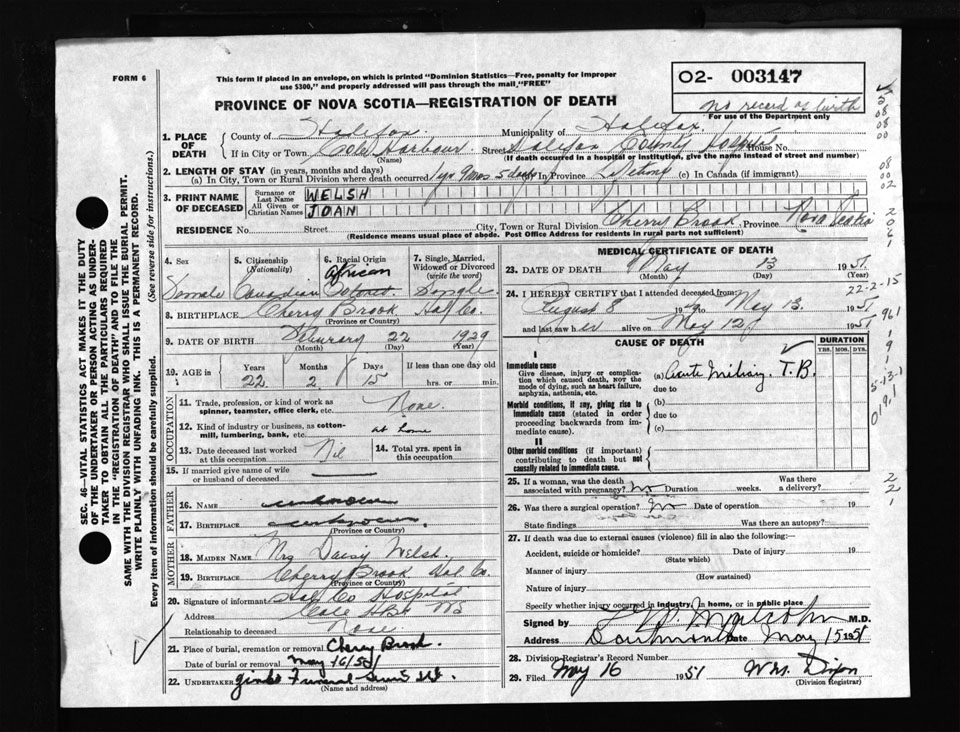 FORM 6
This form if placed in an envelope, on which is printed "Dominion Statistics—Free, penalty for improper
use $300," and properly addressed will pass through the mail, "FREE"
02- 003147
no record of birth
For use of the Department only
PROVINCE OF NOVA SCOTIA—REGISTRATION OF DEATH
1. PLACE OF DEATH
County of Halifax. Municipality of Halifax.
If in City or Town Cole Harbour. Street Halifax County Hospital House No.
(Name) (If death occurred in a hospital or institution, give the name instead of street and number)
2. LENGTH OF STAY (in years, months and days)
(a) In City, Town or Rural Division where death occurred 1 yr 9 mos 5 days (b) In Province Lifetime (c) In Canada (if immigrant)
3. PRINT NAME OF DECEASED
Surname or Last Name WELSH
All Given or Christian Names JOAN
RESIDENCE No. Street City, Town or Rural Division Cherry Brook Province Nova Scotia
(Residence means usual place of abode. Post Office Address for residents in rural parts not sufficient)
4. Sex
Female
5. Citizenship (Nationality)
Canadian
6. Racial Origin
African
Colored.
7. Single, Married, Widowed or Divorced (write the word)
Single
8. BIRTHPLACE Cherry Brook Hal Co.
(Province or Country)
9. DATE OF BIRTH February 22 1929
(Month) (Day) (Year)
10. AGE in Years Months Days If less than one day old
22 2 15 hrs. or min.
OCCUPATION
11. Trade, profession, or kind of work as spinner, teamster, office clerk, etc. None.
12. Kind of industry or business, as cotton-mill, lumbering, bank, etc. at home
13. Date deceased last worked at this occupation Nil
14. Total yrs. spent in this occupation
15. If married give name of wife or husband of deceased
FATHER
16. NAME unknown
17. BIRTHPLACE unknown.
(Province or Country)
MOTHER
18. MAIDEN NAME Mrs Daisy Welsh.
19. BIRTHPLACE Cherry Brook Hal. Co.
(Province or Country)
20. Signature of informant Half Co Hospital
Address Cole Hbr NS
Relationship to deceased None.
21. Place of burial, cremation or removal Cherry Brook.
Date of burial or removal May 16/51
22. UNDERTAKER Funeral
(Name and address)
MEDICAL CERTIFICATE OF DEATH
23. DATE OF DEATH May 13 1951.
(Month) (Day) (Year)
24. I HEREBY CERTIFY that I attended deceased from:
August 8 1949 to May 13. 1951
and last saw her alive on May 12 1951
CAUSE OF DEATH
DURATION
YRS. MOS. DYS.
I
Immediate cause
Give disease, injury or complication which caused death, not the mode of dying, such as heart failure, asphyxia, asthenia, etc.
(a) Acute Miliary. T.B.
due to
Morbid conditions, if any, giving rise to immediate cause (stated in order proceeding backwards from immediate cause).
(b)
due to
(c)
II
Other morbid conditions (if important) contributing to death but not causally related to immediate cause.
25. If a woman, was the death associated with pregnancy? No Duration weeks. Was there a delivery?
26. Was there a surgical operation? No Date of operation 19
State findings Was there an autopsy?
27. If death was due to external causes (violence) fill in also the following:
Accident, suicide or homicide? Date of injury 19
(State which)
Manner of injury
(How sustained)
Nature of injury
Specify whether injury occurred in industry, in home, or in public place
Signed by Malcolm M.D.
Address Dartmouth Date May 15 1951
28. Division Registrar's Record Number
29. Filed May 16 1951 Wm. Dixon
(Division Registrar)
SEC. 46—VITAL STATISTICS ACT MAKES IT THE DUTY
OF THE UNDERTAKER OR PERSON ACTING AS UNDER-
TAKER TO OBTAIN ALL THE PARTICULARS REQUIRED
IN THE "REGISTRATION OF DEATH" AND TO FILE THE
SAME WITH THE DIVISION REGISTRAR WHO SHALL ISSUE THE BURIAL PERMIT.
WRITE PLAINLY WITH UNFADING INK. THIS IS A PERMANENT RECORD.
Every item of information should be carefully supplied. (See reverse side for instructions.)
22-2-15
961
5-13-1